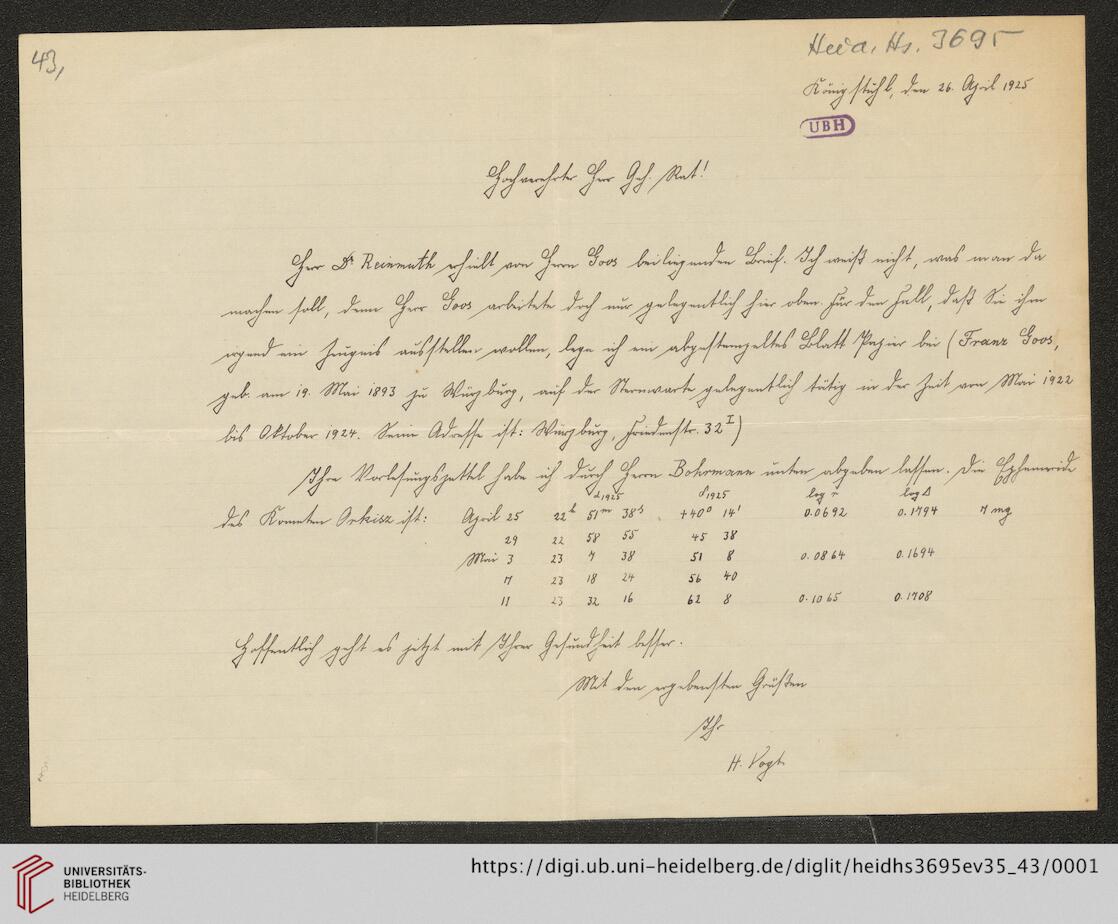 43,
Heid. Hs. 3695
Königstuhl, den 26. April 1925
UBH
Hochverehrter Herr Geh. Rat!
Herr Dr. Reinmuth erhielt von Herrn Goos beiliegenden Brief. Ich weiß nicht, was man da
machen soll, denn Herr Goos arbeitete doch nur gelegentlich hier oben. Für den Fall, daß Sie ihm
irgend ein Zeugnis ausstellen wollen, lege ich ein abgestempeltes Blatt Papier bei (Franz Goos,
geb. am 19. Mai 1893 zu Würzburg, auf der Sternwarte gelegentlich tätig in der Zeit von Mai 1922
bis Oktober 1924. Seine Adresse ist: Würzburg, Friedenstr. 32 I)
Ihre Vorlesungszettel habe ich durch Herrn Bohrmann unten abgeben lassen. Die Ephemeride
α1925 δ1925 log r log Δ
des Kometen Orkisz ist: April 25 22h 51m 38s +40° 14' 0.0692 0.1794 7 mg
29 22 58 55 45 38
Mai 3 23 7 38 51 8 0.0864 0.1694
7 23 18 24 56 40
11 23 32 16 62 8 0.1065 0.1708
Hoffentlich geht es jetzt mit Ihrer Gesundheit besser.
Mit den ergebensten Grüßen
Ihr
H. Vogt.
UNIVERSITÄTS-
BIBLIOTHEK
HEIDELBERG
https://digi.ub.uni-heidelberg.de/diglit/heidhs3695ev35_43/0001